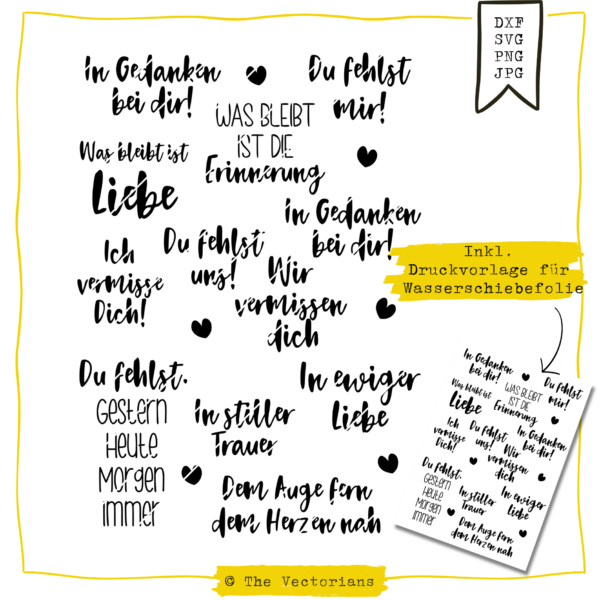 DXF
SVG
PNG
JPG
in Gedanken
bei dir!
Du fehlst
mir!
WAS BLEIBT
IST DIE
Erinnerung
Was bleibt ist
Liebe
in Gedanken
bei dir!
Ich
vermisse
Dich!
Du fehlst
uns!
Wir
vermissen
dich
Inkl.
Druckvorlage für
Wasserschiebefolie
Du fehlst.
Gestern
Heute
Morgen
immer
In stiller
Trauer
In ewiger
Liebe
Dem Auge fern
dem Herzen nah
In Gedanken
bei dir!
Du fehlst
mir!
WAS BLEIBT
IST DIE
Erinnerung
Was bleibt ist
Liebe
in Gedanken
bei dir!
Ich
vermisse
Dich!
Du fehlst
uns!
Wir
vermissen
dich
Du fehlst.
Gestern
Heute
Morgen
immer
In stiller
Trauer
In ewiger
Liebe
Dem Auge fern
dem Herzen nah
© The Vectorians